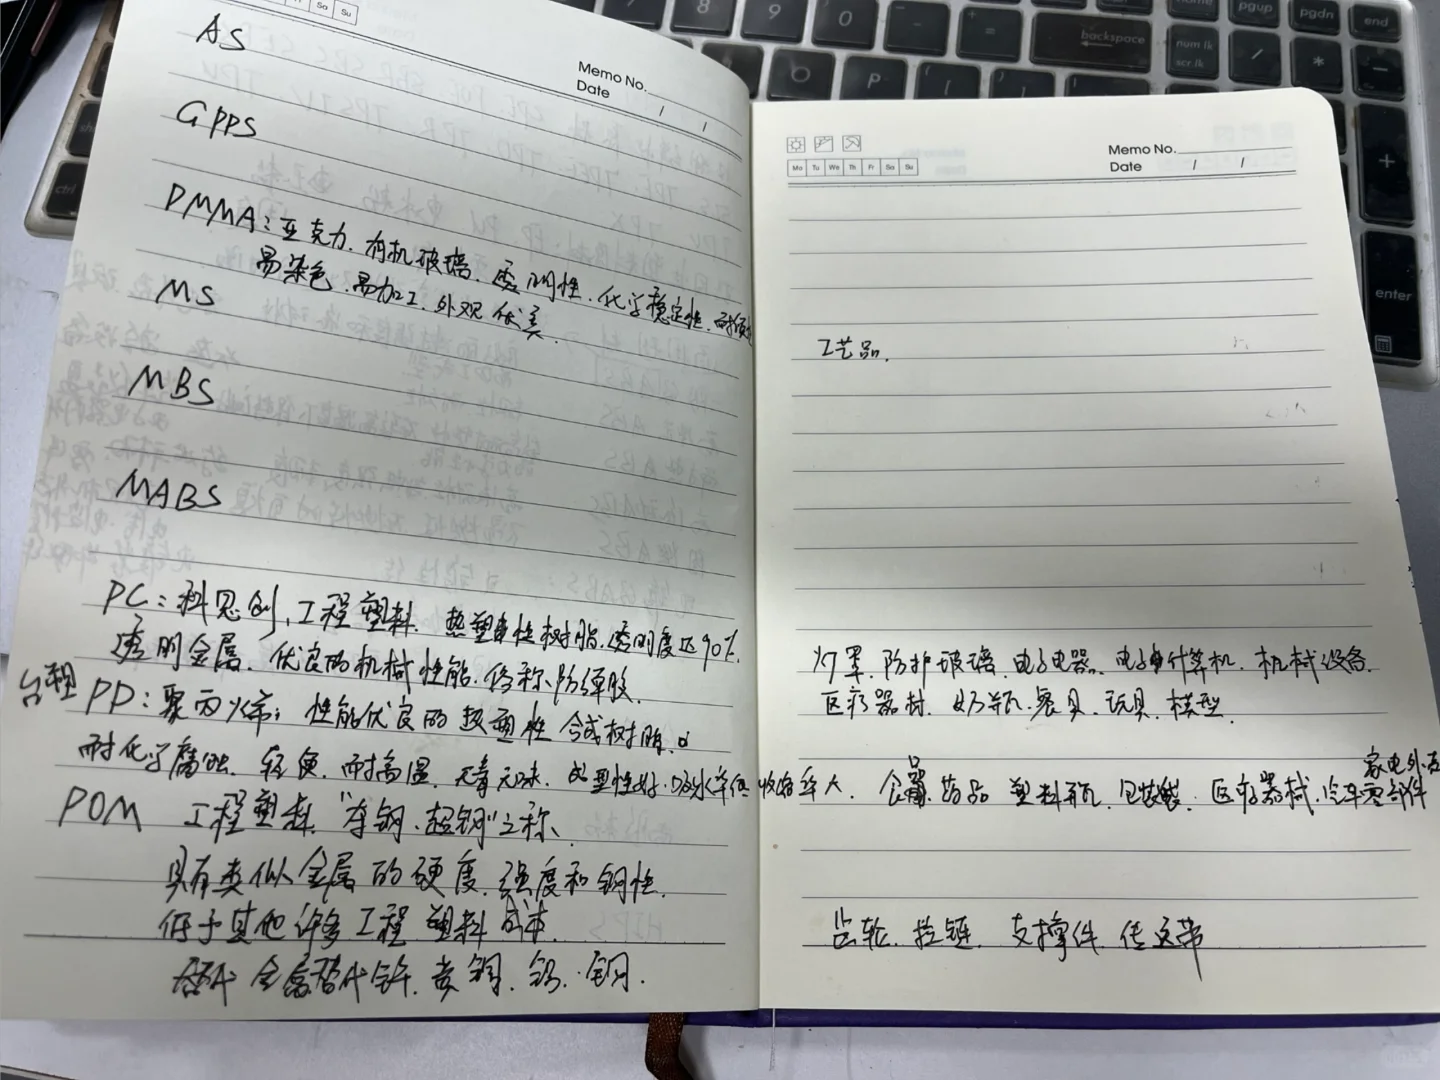 Sa Su
Memo No.
Date / /
AS
GPPS
PMMA：亚克力、有机玻璃、透明性、化学稳定性、耐候
易染色、易加工、外观优美．
MS
MBS
MABS
PC：科思创，工程塑料、热塑性树脂、透明度达90%．
透明金属、优良的机械性能、俗称、防弹胶．
台塑
PP：聚丙烯；性能优良的热塑性合成树脂．
耐化学腐蚀、轻便、耐高温、无毒无味、成型性好、吸水率低 收缩率大．
POM 工程塑料“夺钢、超钢”之称、
具有类似金属的硬度、强度和钢性．
低于其他许多工程塑料成本．
金属替代锌、黄铜、铝、钢．
Mo Tu We Th Fr Sa Su
Memo No.
Date / /
工艺品．
灯罩、防护玻璃、电子电器、电子计算机、机械设备．
医疗器材、奶瓶、餐具、玩具、模型．
家电外壳
食品、药品 塑料瓶、包装袋、医疗器械、汽车零部件
齿轮、拉链、支撑件、传送带
7 8 9 0 - =
backspace
home pgup pgdn end
num lk
scr lk
/ * -
O P [ ]
+
enter
ctrl